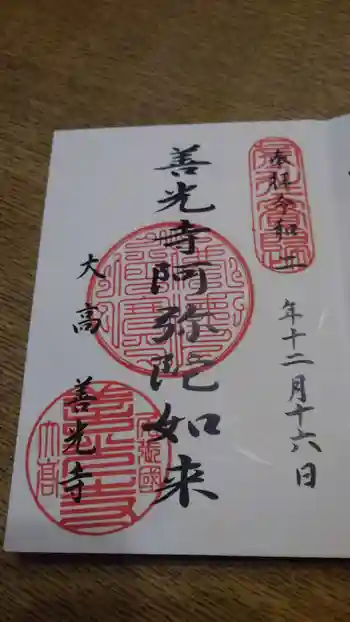 奉拝 令和
年十二月十六日
善光寺阿弥陀如来
大高 善光寺